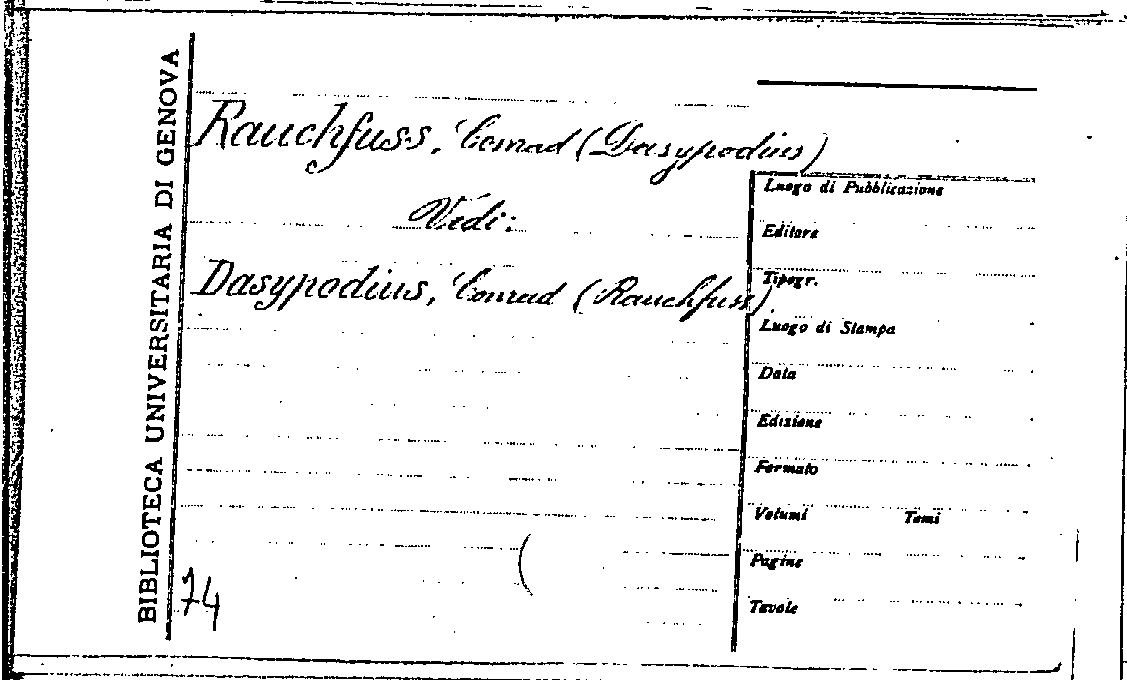 BIBLIOTECA UNIVERSITARIA DI GENOVA
Rauchfuss, Conrad (Dasypodius)
Vedi:
Dasypodius, Conrad (Rauchfuss)
74
Luogo di Pubblicazione
Editore
Tipogr.
Luogo di Stampa
Data
Edizione
Formato
Volumi Tomi
Pagine
Tavole